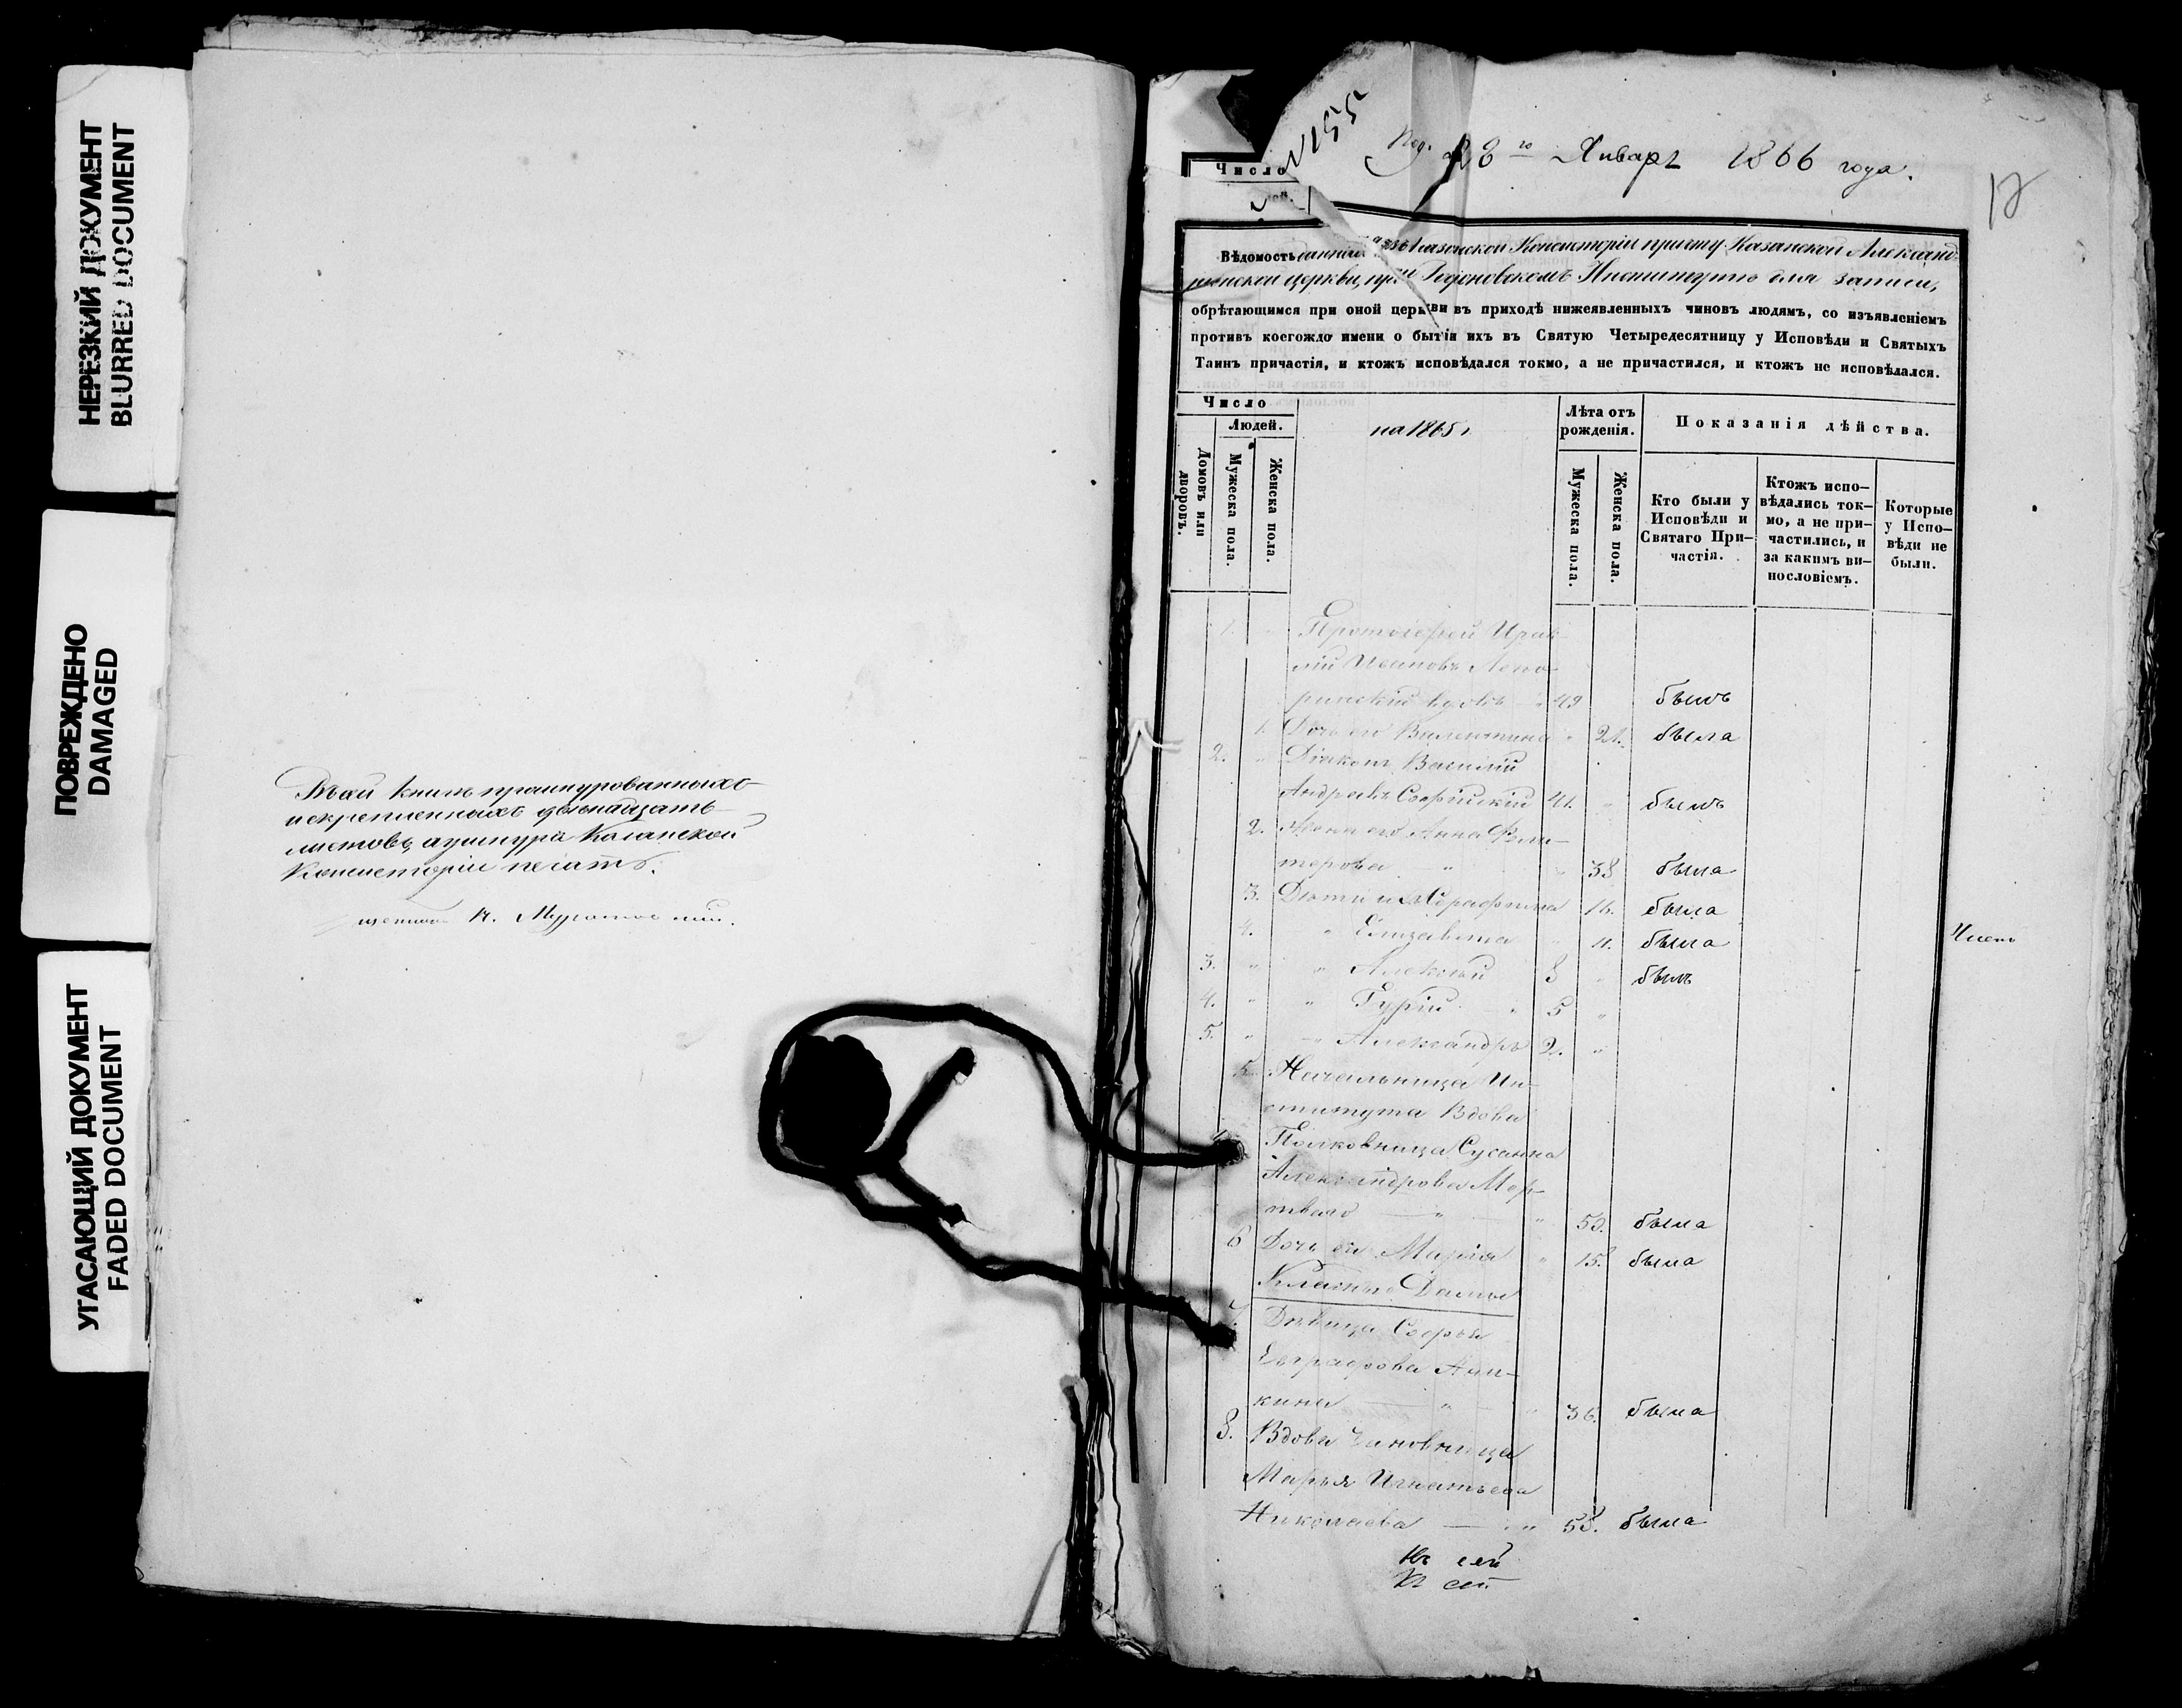 НЕРЕЗКИЙ ДОКУМЕНТ
BLURRED DOCUMENT
ПОВРЕЖДЕНО
DAMAGED
УГАСАЮЩИЙ ДОКУМЕНТ
FADED DOCUMENT
книгѣ прошнурованныхъ
и скрепленныхъ двѣнадцать
листовъ, а у шнура Казанской
Консисторіи печать.
N155
Под. 28го Января 1866 года.
12
Число
Вѣдомость данная изъ Казанской Консисторіи причту Казанской Александ-
ринской церкви, при Родіоновскомъ Институтѣ для записи,
обрѣтающимся при оной церкви въ приходѣ нижеявленныхъ чиновъ людямъ, со изъявленіемъ
противъ коегождо имени о бытіи ихъ въ Святую Четыредесятницу у Исповѣди и Святыхъ
Таинъ причастія, и ктожъ исповѣдался токмо, а не причастился, и ктожъ не исповѣдался.
Число
Людей.
Домовъ или дворовъ.
Мужеска пола.
Женска пола.
на 1865 г.
Лѣта отъ рожденія.
Мужеска пола.
Женска пола.
Показанія дѣйства.
Кто были у Исповѣди и Святаго При-частія.
Ктожъ испо-вѣдались ток-мо, а не при-частились, и за какимъ ви-нословіемъ.
Которые у Испо-вѣди не были.
1. Протоіерей
Ивановъ Лепо-
ринскій вдовъ 49 былъ
1. Дочь его Валентина 21. была
2. Діаконъ Василій
Андреевъ Софійскій 41. былъ
2. Жена его Анна
38 была
3. Дѣти ихъ Серафима 16. была
4. Елизавета 11. была
3. Алексѣй 8 былъ
4. Гурій 5
5. Александръ 2.
5. Начальница Ин-
ститута Вдова
Полковница Сусанна
Александрова Мер-
тваго 50. была
6 Дочь ея Марія 15. была
Классныя Дамы
7. Дѣвица Софья
Евграфова Ани-
кина 36. была
8. Вдова Чиновница
Марья Игнатьева
Николаева 58. была
Къ сей
Членъ